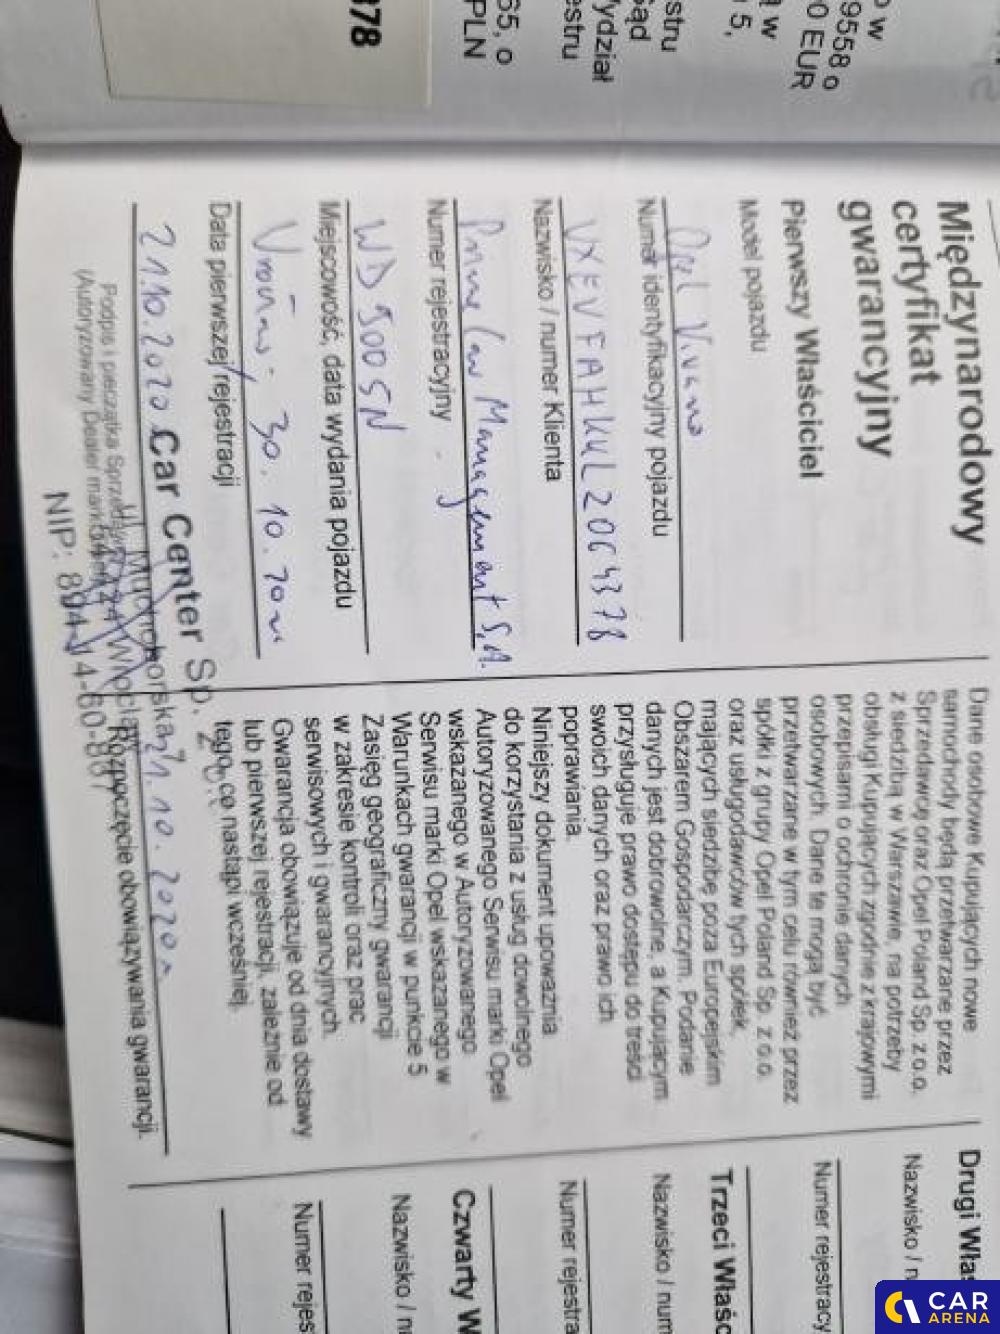 378
65, o
PLN
stru
Sąd
Wydział
estru
o w
9558 o
0 EUR
ą w
5,
Międzynarodowy
certyfikat
gwarancyjny
Pierwszy Właściciel
Model pojazdu
Opel Vivaro
Numer identyfikacyjny pojazdu
VXEVFAHKUL2064378
Nazwisko / numer Klienta
Prime Car Management S.A.
Numer rejestracyjny
WD 5005N
Miejscowość, data wydania pojazdu
30.10.2020
Data pierwszej rejestracji
21.10.2020
Car Center Sp. z o.
ul. Muchoborska
NIP: 894
Podpis i pieczątka Sprzedawcy
(Autoryzowany Dealer marki
Dane osobowe Kupujących nowe
samochody będą przetwarzane przez
Sprzedawcę oraz Opel Poland Sp. z o.o.
z siedzibą w Warszawie, na potrzeby
obsługi Kupujących zgodnie z krajowymi
przepisami o ochronie danych
osobowych. Dane te mogą być
przetwarzane w tym celu również przez
spółki z grupy Opel Poland Sp. z o.o.
oraz usługodawców tych spółek,
mających siedzibę poza Europejskim
Obszarem Gospodarczym. Podanie
danych jest dobrowolne, a Kupującym
przysługuje prawo dostępu do treści
swoich danych oraz prawo ich
poprawiania.
Niniejszy dokument upoważnia
do korzystania z usług dowolnego
Autoryzowanego Serwisu marki Opel
wskazanego w Autoryzowanego
Serwisu marki Opel wskazanego w
Warunkach gwarancji w punkcie 5
Zasięg geograficzny gwarancji
w zakresie kontroli oraz prac
serwisowych i gwarancyjnych.
Gwarancja obowiązuje od dnia dostawy
lub pierwszej rejestracji, zależnie od
tego, co nastąpi wcześniej.
31.10.2020r
Rozpoczęcie obowiązywania gwarancji.
Drugi Właś
Nazwisko / n
Numer rejestracy
Trzeci Właśc
Nazwisko / num
Numer rejestra
Czwarty W
Nazwisko / n
Numer rejes
CAR
ARENA